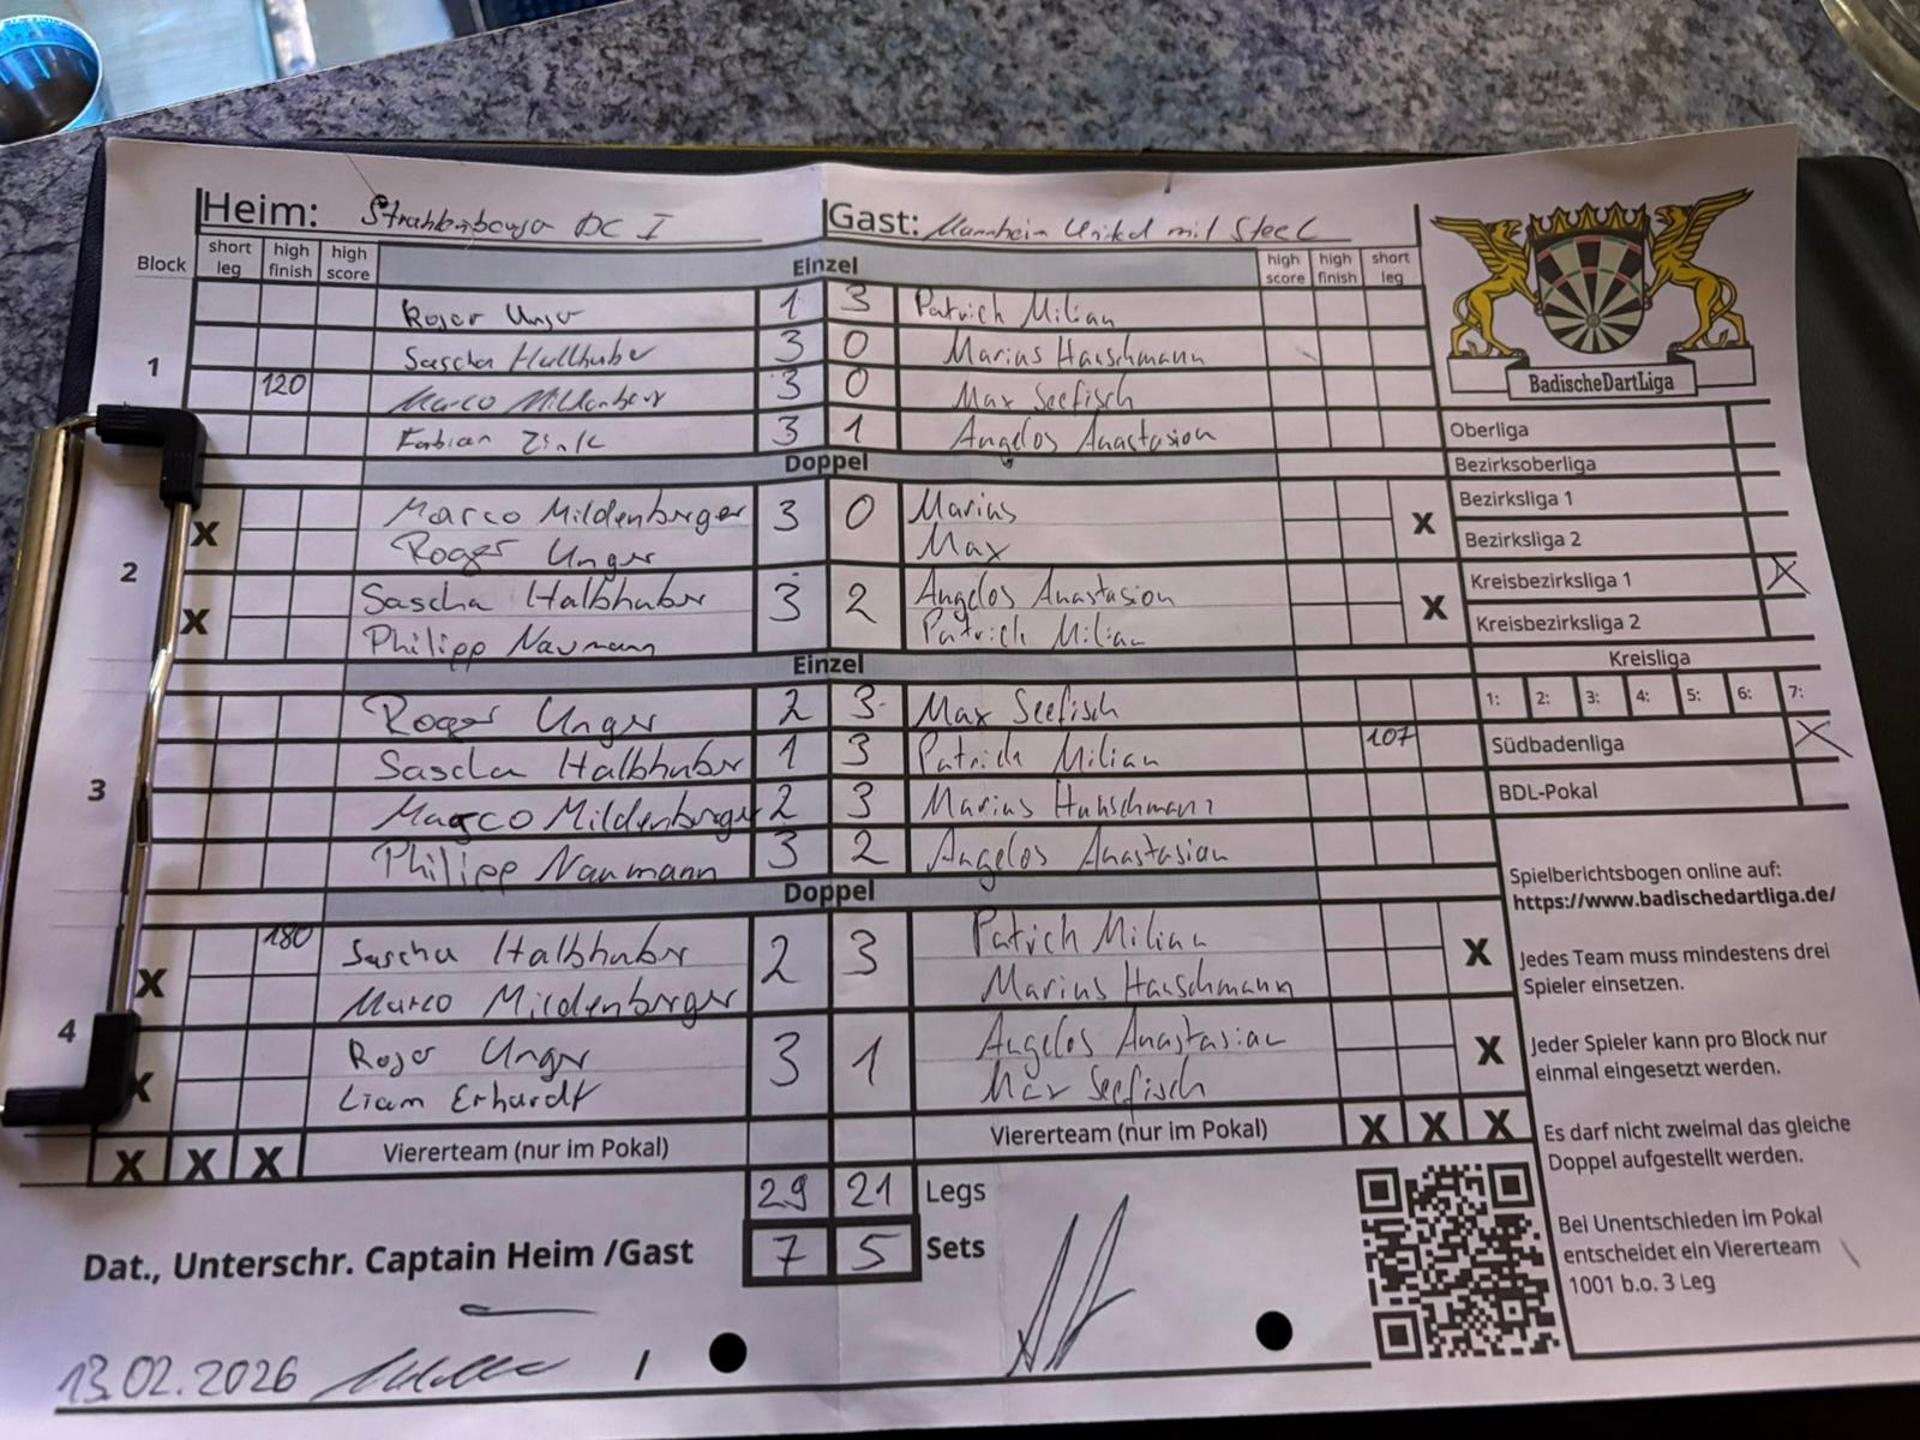 Heim: Strahlenburger DC I Gast: Mannheim United mit Steel
Block short leg high finish high score Einzel high score high finish short leg
1
Roger Unger 1 3 Patrich Milian
Sascha Hallhuber 3 0 Marius Haaschmann
120 Marco Mildenberger 3 0 Max Seefisch
Fabian Zink 3 1 Angelos Anastasion
BadischeDartLiga
Doppel
2
X Marco Mildenberger 3 0 Marius X
Roger Unger Max
X Sascha Halbhuber 3 2 Angelos Anastasion X
Philipp Naumann Patrich Milian
Einzel
3
Roger Unger 2 3 Max Seefisch
Sascha Halbhuber 1 3 Patrich Milian 107
Marco Mildenberger 2 3 Marius
Philipp Naumann 3 2 Angelos Anastasion
Doppel
4
X 180 Sascha Halbhuber 2 3 Patrich Milian X
Marco Mildenberger Marius Haaschmann
X Roger Unger 3 1 Angelos Anastasion X
Liam Erhardt Max Seefisch
X X X Viererteam (nur im Pokal) Viererteam (nur im Pokal) X X X
29 21 Legs
7 5 Sets
Dat., Unterschr. Captain Heim /Gast
13.02.2026 /
Oberliga
Bezirksoberliga
Bezirksliga 1
Bezirksliga 2
Kreisbezirksliga 1 X
Kreisbezirksliga 2
Kreisliga
1: 2: 3: 4: 5: 6: 7:
Südbadenliga X
BDL-Pokal
Spielberichtsbogen online auf:
https://www.badischedartliga.de/
Jedes Team muss mindestens drei
Spieler einsetzen.
Jeder Spieler kann pro Block nur
einmal eingesetzt werden.
Es darf nicht zweimal das gleiche
Doppel aufgestellt werden.
Bei Unentschieden im Pokal
entscheidet ein Viererteam
1001 b.o. 3 Leg